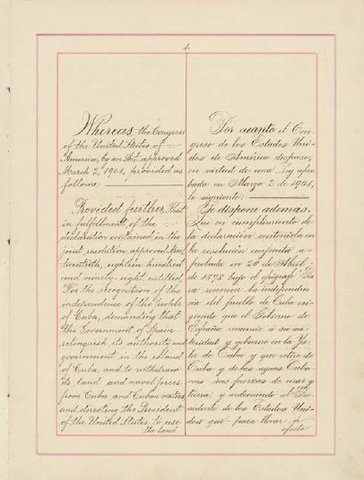 1.
Whereas the Congress
of the United States of
America, by an Act approved
March 2, 1901, provided as
follows:
Provided further, That
in fulfillment of the
declaration contained in the
joint resolution approved April
twentieth, eighteen hundred
and ninety-eight, entitled,
"For the recognition of the
independence of the people
of Cuba, demanding that
the Government of Spain
relinquish its authority and
government in the island
of Cuba, and to withdraw
its land and naval forces
from Cuba and Cuban waters
and directing the President
of the United States to use
the land
Por cuanto el Con-
greso de los Estados Uni-
dos de América dispuso,
en virtud de una Ley apro-
bada en Marzo 2 de 1901,
lo siguiente:
Se dispone además,
Que en cumplimiento de
la declaración contenida en
la resolución conjunta a-
probada en 20 de Abril
de 1898 bajo el epígrafe "Pa-
ra reconocer la independen-
cia del pueblo de Cuba exi-
giendo que el Gobierno de
España renuncie á su au-
toridad y gobierno en la Is-
la de Cuba y que retire de
Cuba y de las aguas Cuba-
nas sus fuerzas de mar y
tierra y ordenando al Pre-
sidente de los Estados Uni-
dos que para llevar á
efecto